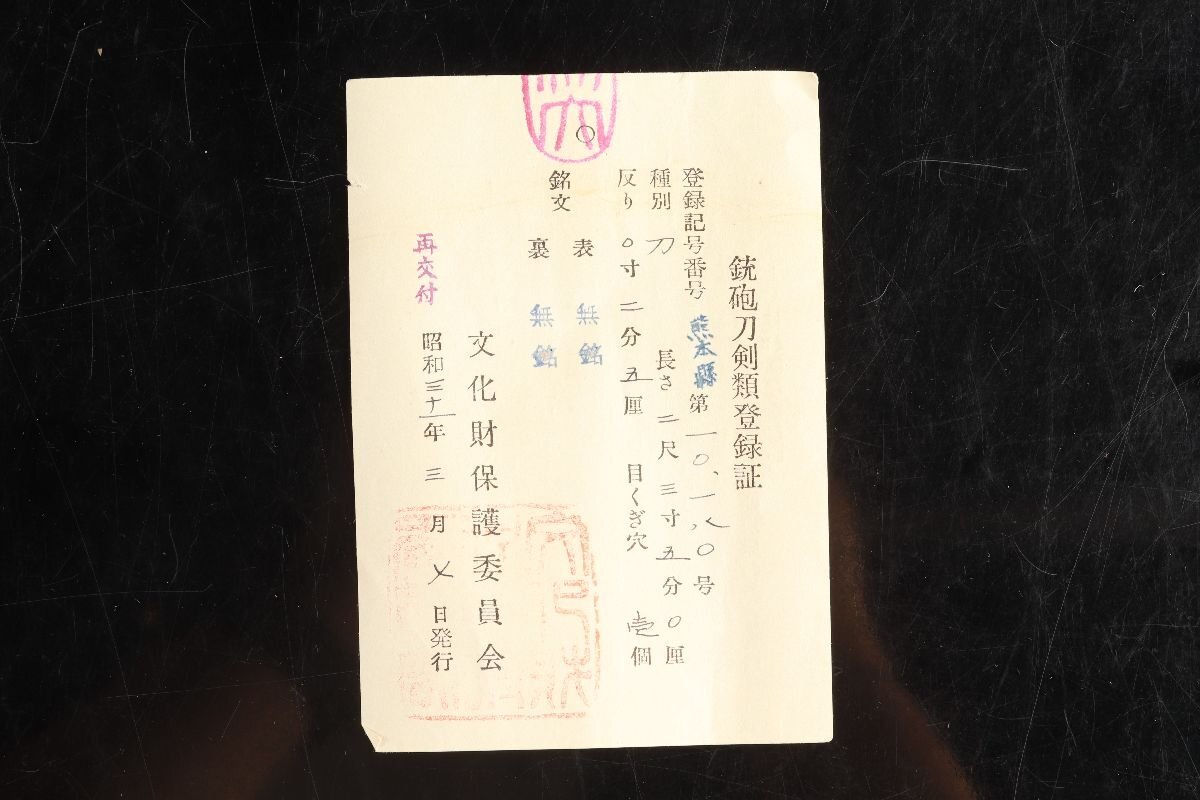 銃砲刀剣類登録証
登録記号番号 熊本縣 第一〇、一八〇号
種別 刀 長さ 二尺三寸五分〇厘
反り 〇寸二分五厘 目くぎ穴 壱個
銘文 表 無銘
裏 無銘
文化財保護委員会
昭和三十一年三月 日発行
再交付